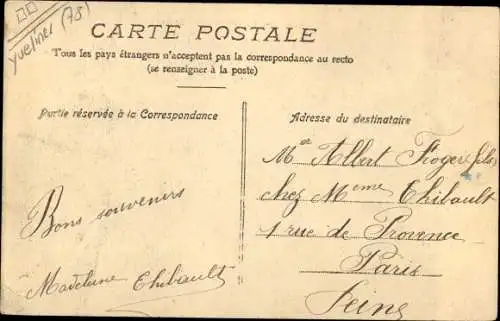 Yvelines (78)
CARTE POSTALE
Tous les pays étrangers n'acceptent pas la correspondance au recto
(se renseigner à la poste)
Partie réservée à la Correspondance
Adresse du destinataire
Bons souvenirs
Madeleine Thibault
Mr Albert Froger fils
chez Mme Thibault
1 rue de Provence
Paris
Seine